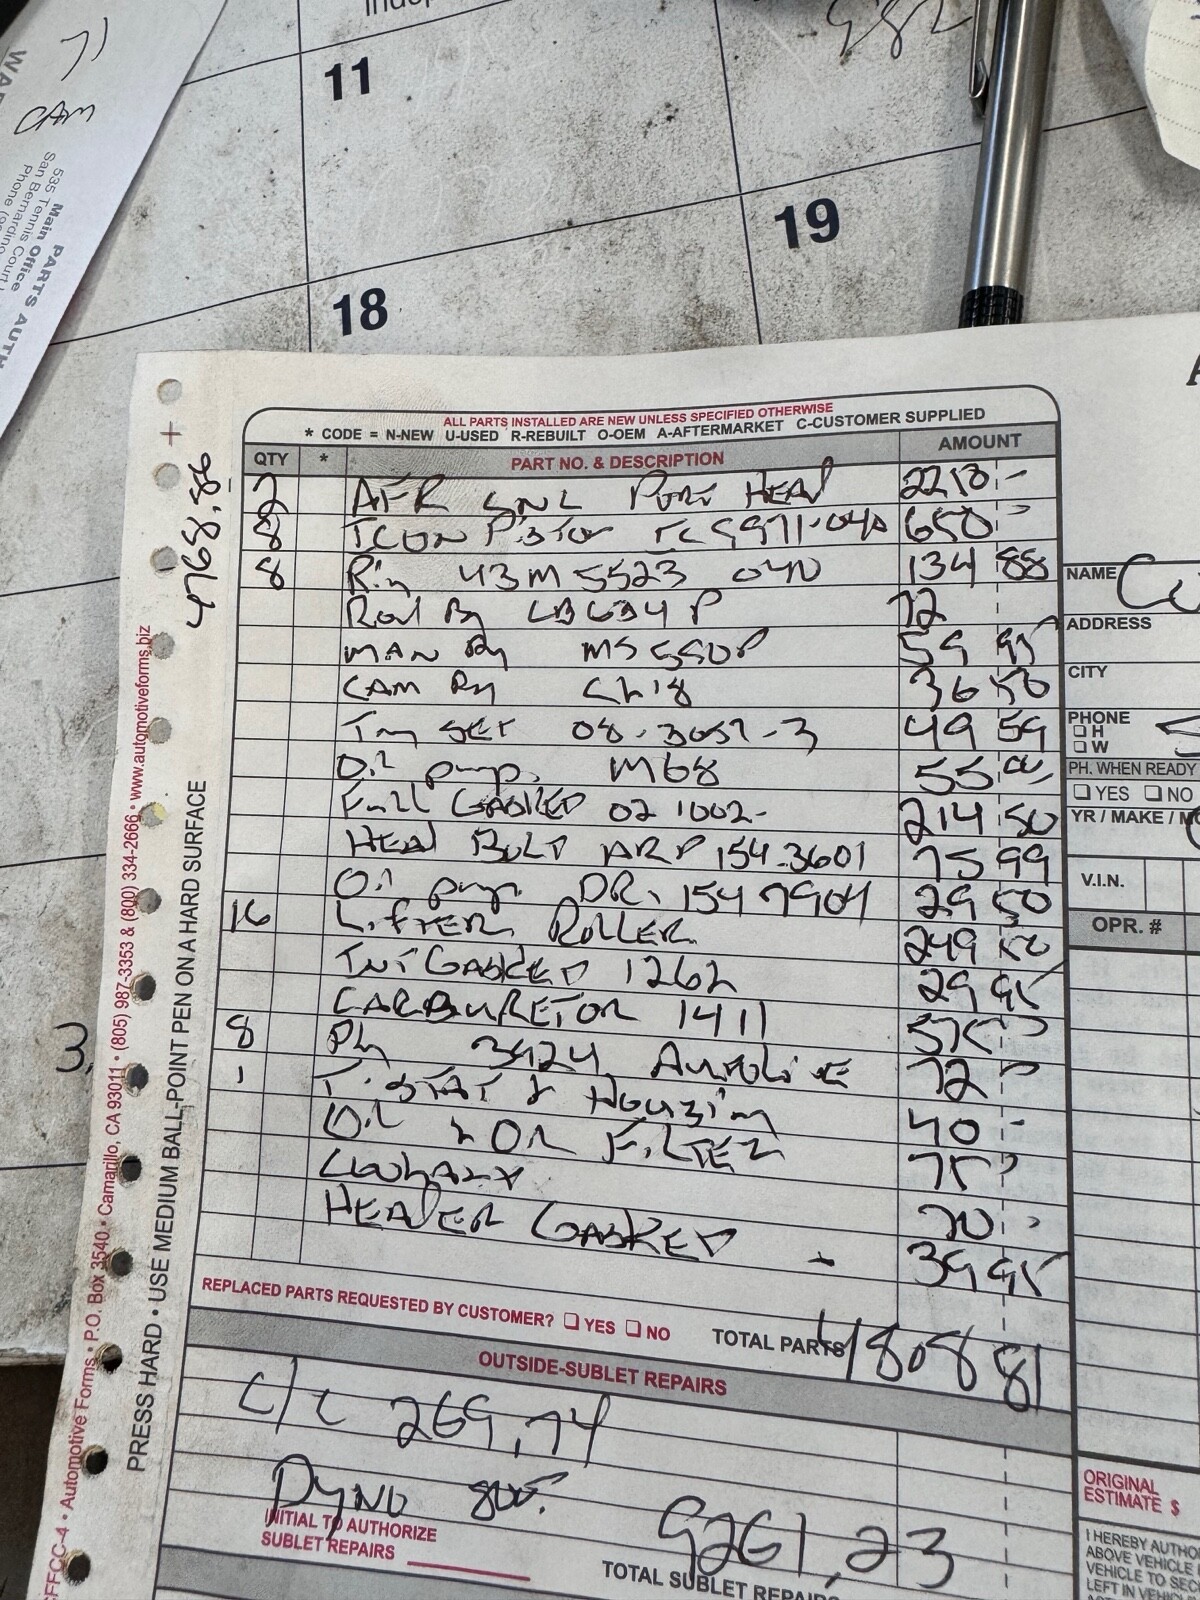 11
19
18
CAM
WAR
PARTS AUTH
Main Office
535 Tennis Court
San Bernardino
Phone
4768.86
ALL PARTS INSTALLED ARE NEW UNLESS SPECIFIED OTHERWISE
* CODE = N-NEW U-USED R-REBUILT O-OEM A-AFTERMARKET C-CUSTOMER SUPPLIED
QTY * PART NO. & DESCRIPTION AMOUNT
2 AFR HEAD 2218 -
8 ICON Piston IC9971-040 650 -
8 Ring 43M5523 040 134 88
Rod Bg CB634P 72
MAN Bg MS590P 59 95
CAM Bg Ch18 36 50
Tmg SET 08-3057-3 49 59
Oil pump M68 55 00
Full GASKED 02 1002- 214 50
HEAD BOLD ARP 154-3601 75 99
Oil pump DR. 154 7904 29 50
16 LiFTER ROLLER 249 50
INT GASKED 1262 29 95
CARBURETOR 1411 575 -
8 Plg 3924 AUTOLITE 72 -
1 T-STAT & HOUSING 40 -
Oil & Oil FiLTER 75 -
20 -
HEADER GASKED - 39 95
REPLACED PARTS REQUESTED BY CUSTOMER? YES NO TOTAL PARTS 4808 81
OUTSIDE-SUBLET REPAIRS
C/C 269,74
DYNO 800.
INITIAL TO AUTHORIZE
SUBLET REPAIRS
9261,23
TOTAL SUBLET REPAIRS
NAME
ADDRESS
CITY
PHONE
H
W
PH. WHEN READY
YES NO
YR / MAKE / MO
V.I.N.
OPR. #
ORIGINAL
ESTIMATE $
I HEREBY AUTHO
ABOVE VEHICLE
VEHICLE TO SEC
LEFT IN VEHIC
PRESS HARD • USE MEDIUM BALL-POINT PEN ON A HARD SURFACE
CFFCC-4 • Automotive Forms • P.O. Box 3540 • Camarillo, CA 93011 • (805) 987-3353 & (800) 334-2666 • www.automotiveforms.biz
3